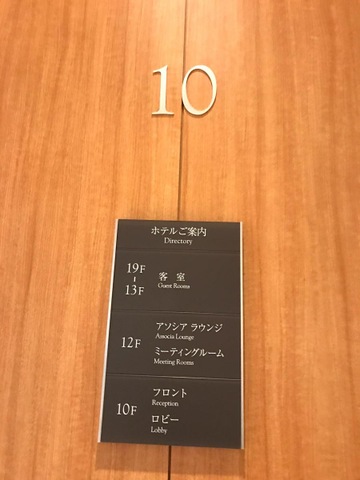 10
ホテルご案内
Directory
19F
-
13F
客 室
Guest Rooms
12F
アソシア ラウンジ
Associa Lounge
ミーティングルーム
Meeting Rooms
10F
フロント
Reception
ロビー
Lobby